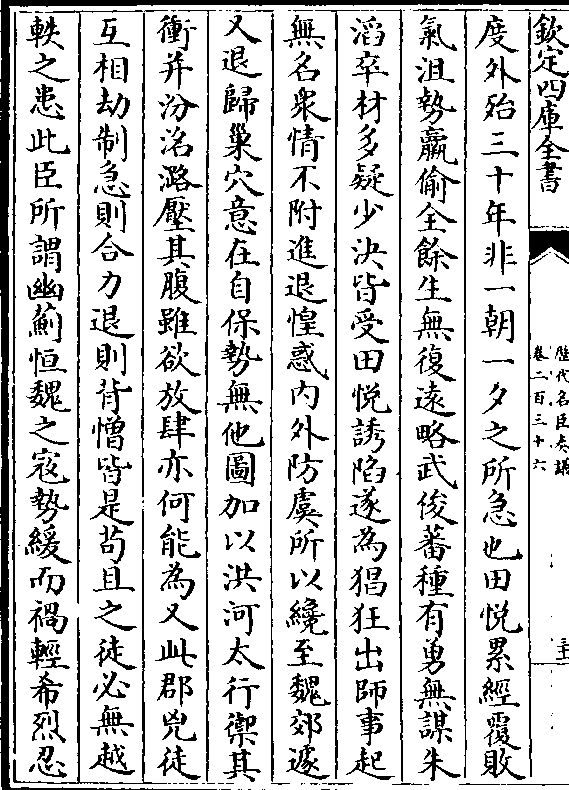 欽定四庫全書
歷代名臣奏議
卷二百三十六
度外殆三十年非一朝一夕之所急也田悦累經覆敗
氣沮勢羸偷全餘生無復逺略武俊蕃種有勇無謀朱
滔卒材多疑少決皆受田悦誘陷遂為猖狂出師事起
無名衆情不附進退惶惑内外防虞所以纔至魏郊遽
又退歸巢穴意在自保勢無他圖加以洪河太行禦其
衝并汾洺潞壓其腹雖欲放肆亦何能為又此郡兇徒
互相劫制急則合力退則背憎皆是苟且之徒必無越
軼之患此臣所謂幽薊恒魏之寇勢緩而禍輕希烈忍